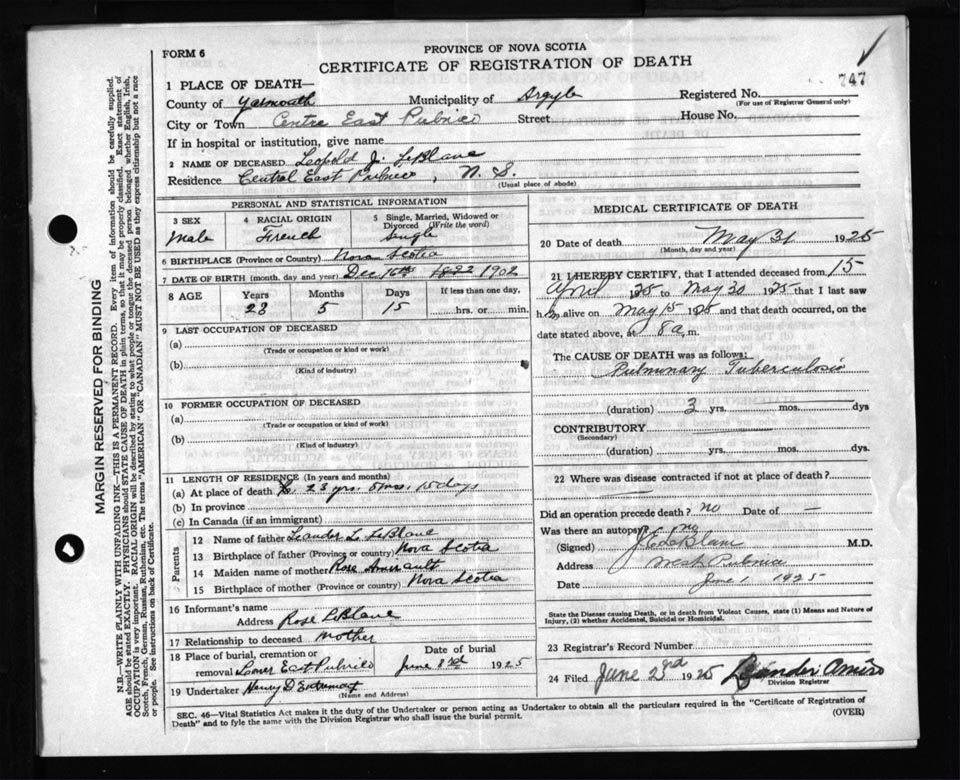 FORM 6
PROVINCE OF NOVA SCOTIA
CERTIFICATE OF REGISTRATION OF DEATH
747
1 PLACE OF DEATH—
County of Yarmouth Municipality of Argyle Registered No.
(For use of Registrar General only)
City or Town Centre East Pubnico Street House No.
If in hospital or institution, give name
2 NAME OF DECEASED Leopold J. LeBlanc
Residence Central East Pubnico, N. S.
(Usual place of abode)
PERSONAL AND STATISTICAL INFORMATION
3 SEX Male
4 RACIAL ORIGIN French
5 Single, Married, Widowed or Divorced (Write the word) Single
6 BIRTHPLACE (Province or Country) Nova Scotia
7 DATE OF BIRTH (month, day and year) Dec 16th 1822 1902
8 AGE Years Months Days If less than one day,
23 5 15 hrs. or min.
9 LAST OCCUPATION OF DECEASED
(a)
(Trade or occupation or kind or work)
(b)
(Kind of industry)
10 FORMER OCCUPATION OF DECEASED
(a)
(Trade or occupation or kind or work)
(b)
(Kind of industry)
11 LENGTH OF RESIDENCE (In years and months)
(a) At place of death 23 yrs. 5 mos. 15 days
(b) In province
(c) In Canada (if an immigrant)
Parents
12 Name of father Leander L. LeBlanc
13 Birthplace of father (Province or country) Nova Scotia
14 Maiden name of mother Rose Amirault
15 Birthplace of mother (Province or country) Nova Scotia
16 Informant's name
Address Rose LeBlanc
17 Relationship to deceased Mother
18 Place of burial, cremation or removal Lower East Pubnico
Date of burial June 3rd 1925
19 Undertaker Henry D Entremont
(Name and Address)
MEDICAL CERTIFICATE OF DEATH
20 Date of death May 31 1925
(Month, day and year)
21 I HEREBY CERTIFY, that I attended deceased from 15
April 1925 to May 30 1925 that I last saw
him alive on May 15 1925 and that death occurred, on the
date stated above, at 8 a. m.
The CAUSE OF DEATH was as follows:
Pulmonary Tuberculosis
(duration) 3 yrs. mos. dys
CONTRIBUTORY
(Secondary)
(duration) yrs. mos. dys.
22 Where was disease contracted if not at place of death?
Did an operation precede death? no Date of —
Was there an autopsy? no
(Signed) J E LeBlanc M.D.
Address West Pubnico
Date June 1 1925
State the Disease causing Death, or in death from Violent Causes, state (1) Means and Nature of
Injury, (2) whether Accidental, Suicidal or Homicidal.
23 Registrar's Record Number
24 Filed June 2nd 1925 Leander Amiro
Division Registrar
SEC. 46—Vital Statistics Act makes it the duty of the Undertaker or person acting as Undertaker to obtain all the particulars required in the "Certificate of Registration of
Death" and to fyle the same with the Division Registrar who shall issue the burial permit.
(OVER)
MARGIN RESERVED FOR BINDING
N.B.—WRITE PLAINLY WITH UNFADING INK—THIS IS A PERMANENT RECORD. Every item of information should be carefully supplied.
AGE should be stated EXACTLY. PHYSICIANS should STATE CAUSE OF DEATH in plain terms, so that it may be properly classified. Exact statement of
OCCUPATION is very important. RACIAL ORIGIN will be described by stating to what people or tongue the deceased person belonged whether English, Irish,
Scotch, French, German, Russian, Ruthenian, etc. The terms "AMERICAN" or "CANADIAN" MUST NOT BE USED as they express citizenship but not a race
or people. See Instructions on back of Certificate.